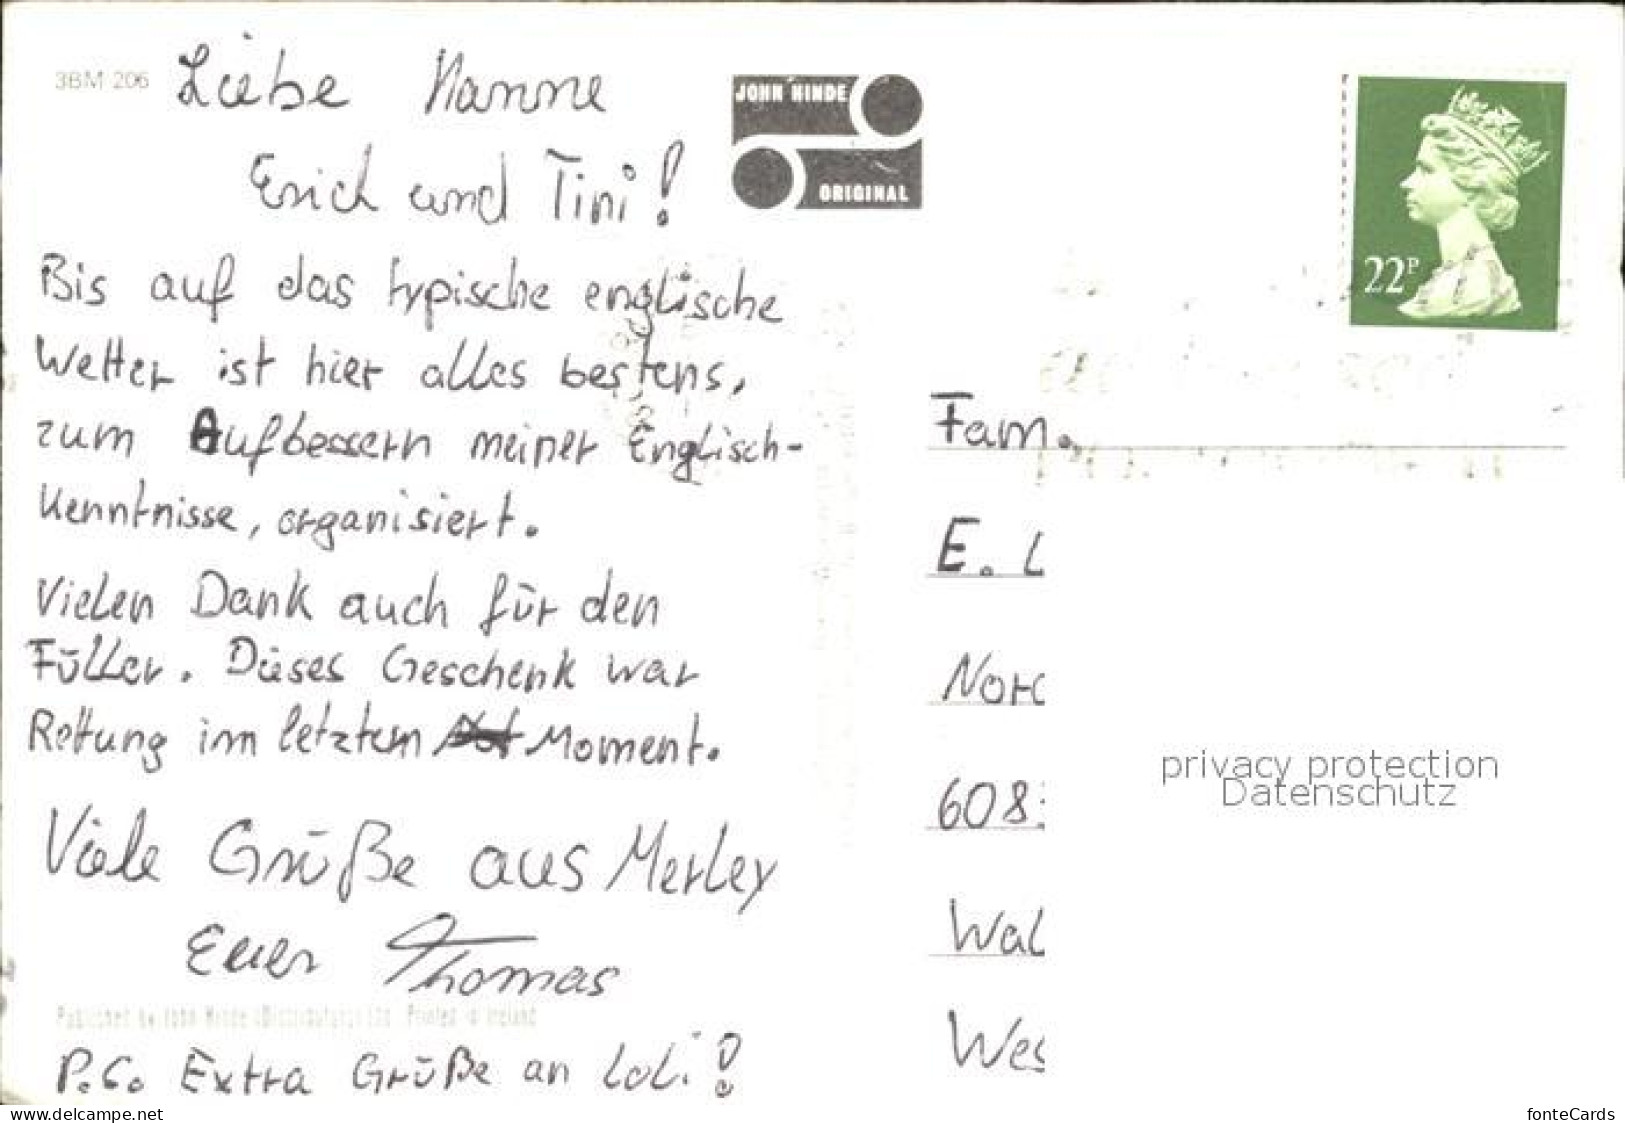 3BM 206
Liebe Hanne
Erich und Tini!
Bis auf das typische englische
Wetter ist hier alles bestens,
zum Aufbessern meiner Englisch-
kenntnisse, organisiert.
Vielen Dank auch für den
Füller. Dieses Geschenk war
Rettung im letzten Moment.
Viele Grüße aus Merley
Euer Thomas
Published by John Hinde (Distributors) Ltd. Printed in Ireland
P.S. Extra Grüße an Loli!
JOHN HINDE
ORIGINAL
22P
Fam.
E. L
Nord
608
Wal
Wes
privacy protection
Datenschutz
delcampe.net
fonteCards